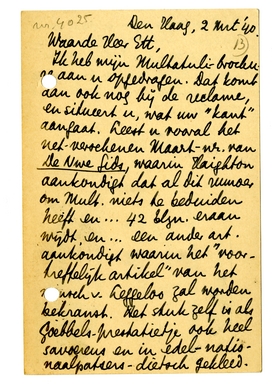 nr. 4025.
Den Haag, 2 Mrt '40.
13)
Waarde Heer Ett,
Ik heb mijn Multatuli-brochu-
re aan u opgedragen. Dat komt
dan ook nog bij de reclame,
en situeert u, wat uw "kant"
aangaat. Leest u vooral het
net-verschenen Maart-nr. van
De Nwe Gids, waarin Haighton
aankondigt dat al dit rumoer
om Mult. niets te beduiden
heeft en... 42 blzn. eraan
wijdt, en... een ander art.
aankondigt waarin het "voor-
treffelijk artikel" van het
mensch v. Leggeloo zal worden
bekranst. Het stuk zelf is als
Goebbels-prestatietje ook heel
savoureus en in edel-natio-
naalpatsers-dietsch gekleed.